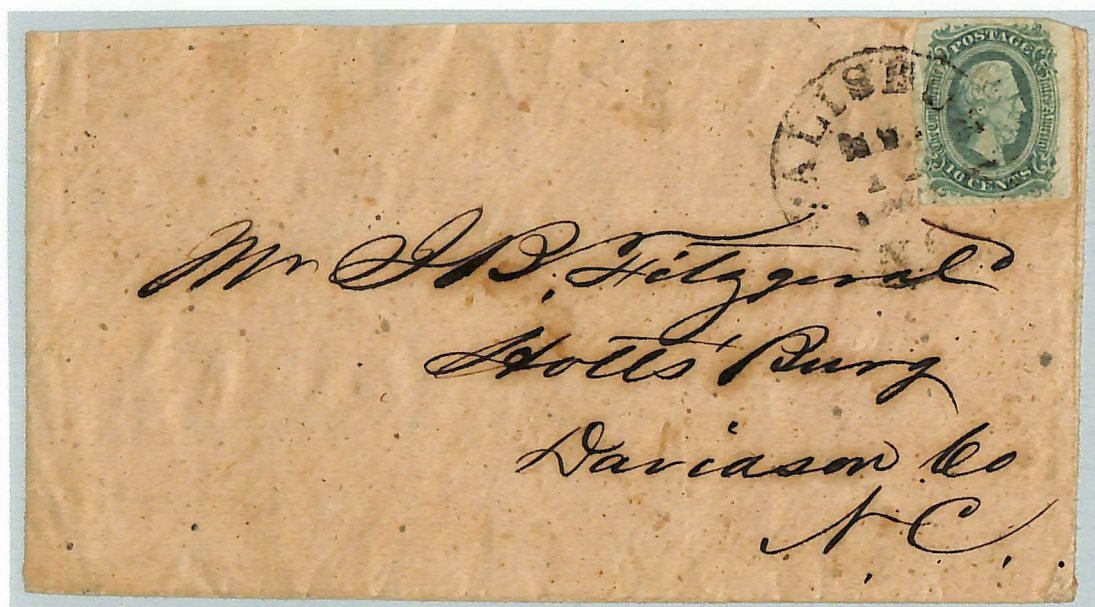 POSTAGE
10 CENTS
SALISB
N.C.
Mr J B. Fitzgerald
Holts Burg
Davidson Co
N. C.